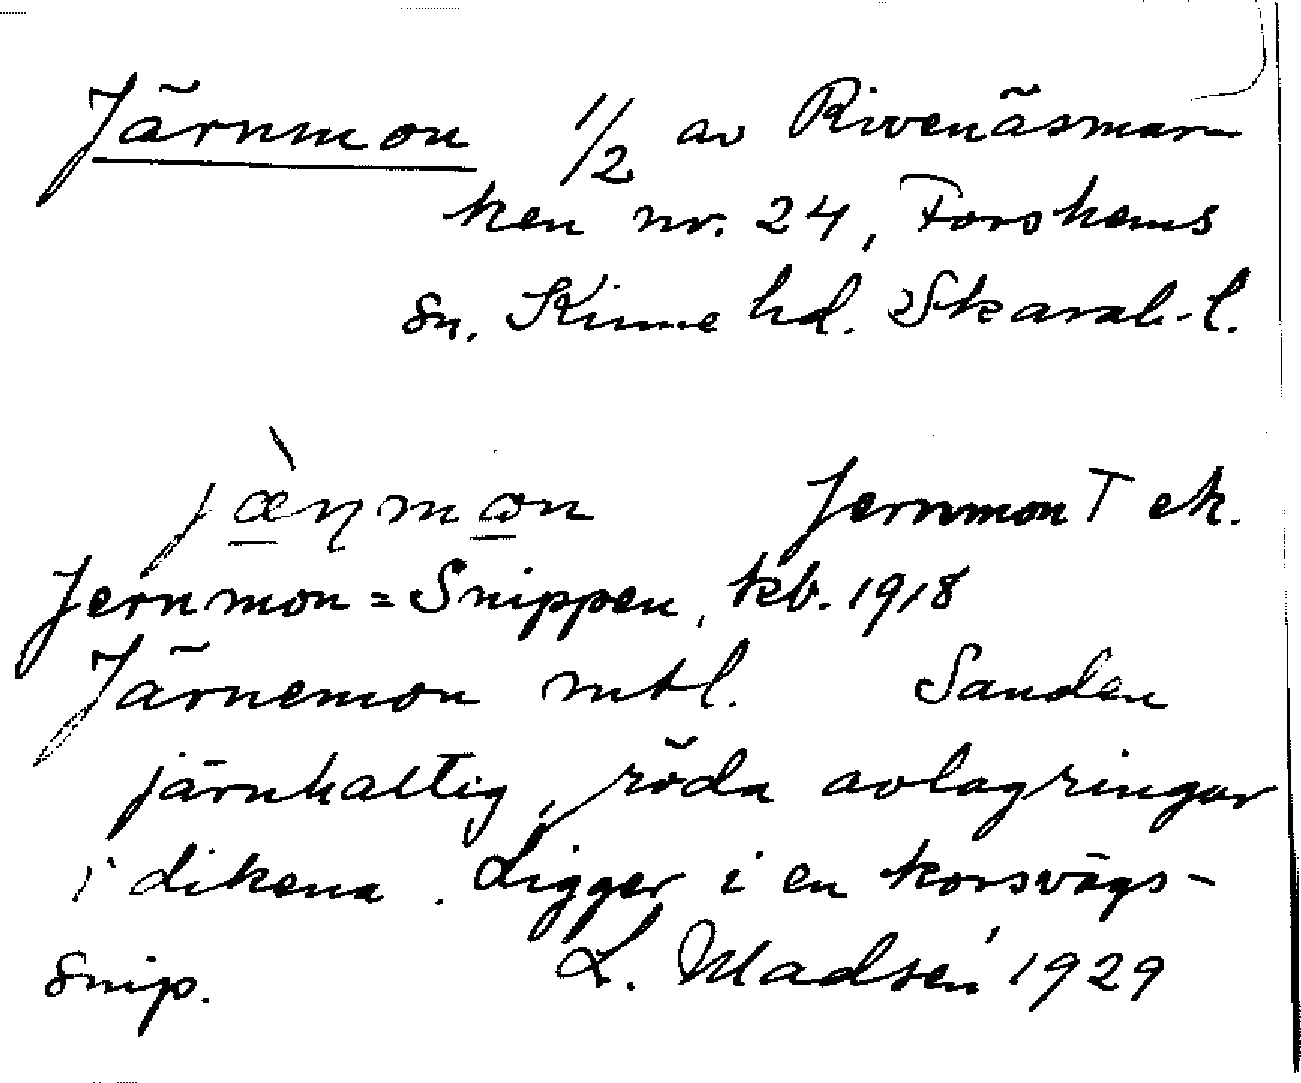 Järnmon 1/2 av Rivenäsmar-
ken nr. 24, Forshems
sn. Kinne hd. Skarab.-l.
jæ̀ṉmo̱n Jernmon T ek.
Jernmon = Snippen, kb. 1918
Järnemon mtl. Sanden
järnhaltig, röda avlagringar
i dikena. Ligger i en korsvägs-
snip. L. Madsén 1929